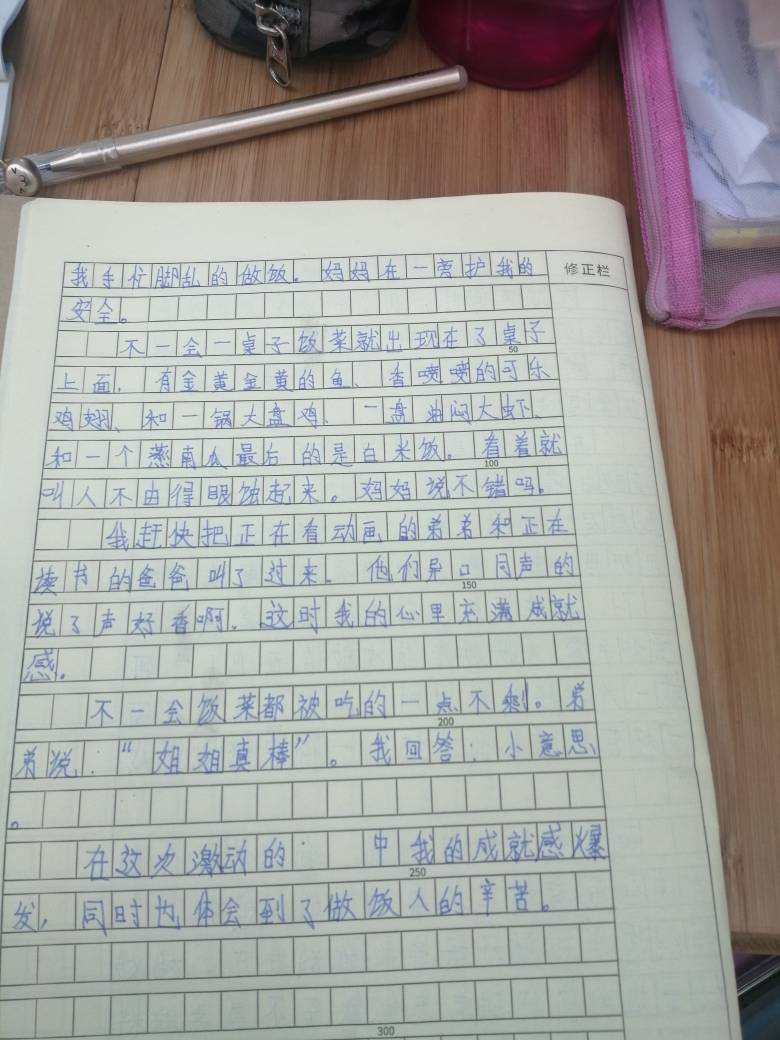 我手忙脚乱的做饭。妈妈在一旁护我的
修正栏
安全。
不一会一桌子饭菜就出现在了桌子
50
上面，有金黄金黄的鱼、香喷喷的可乐
鸡翅、和一锅大盘鸡、一盘油闷大虾、
和一个蒸南瓜最后的是白米饭。看着就
100
叫人不由得眼馋起来。妈妈说不错吗。
我赶快把正在看动画的弟弟和正在
读书的爸爸叫了过来。他们异口同声的
150
说了声好香啊。这时我的心里充满成就
感。
不一会饭菜都被吃的一点不剩。弟
200
弟说：“姐姐真棒”。我回答：小意思
。
在这次激动的 中我的成就感爆
250
发，同时也体会到了做饭人的辛苦。
300